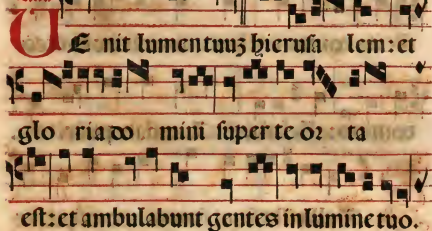 VE nit lumen tuuʒ hieruſa lem: et
glo ria do mini ſuper te oꝛ ta
eſt: et ambulabunt gentes in lumine tuo.